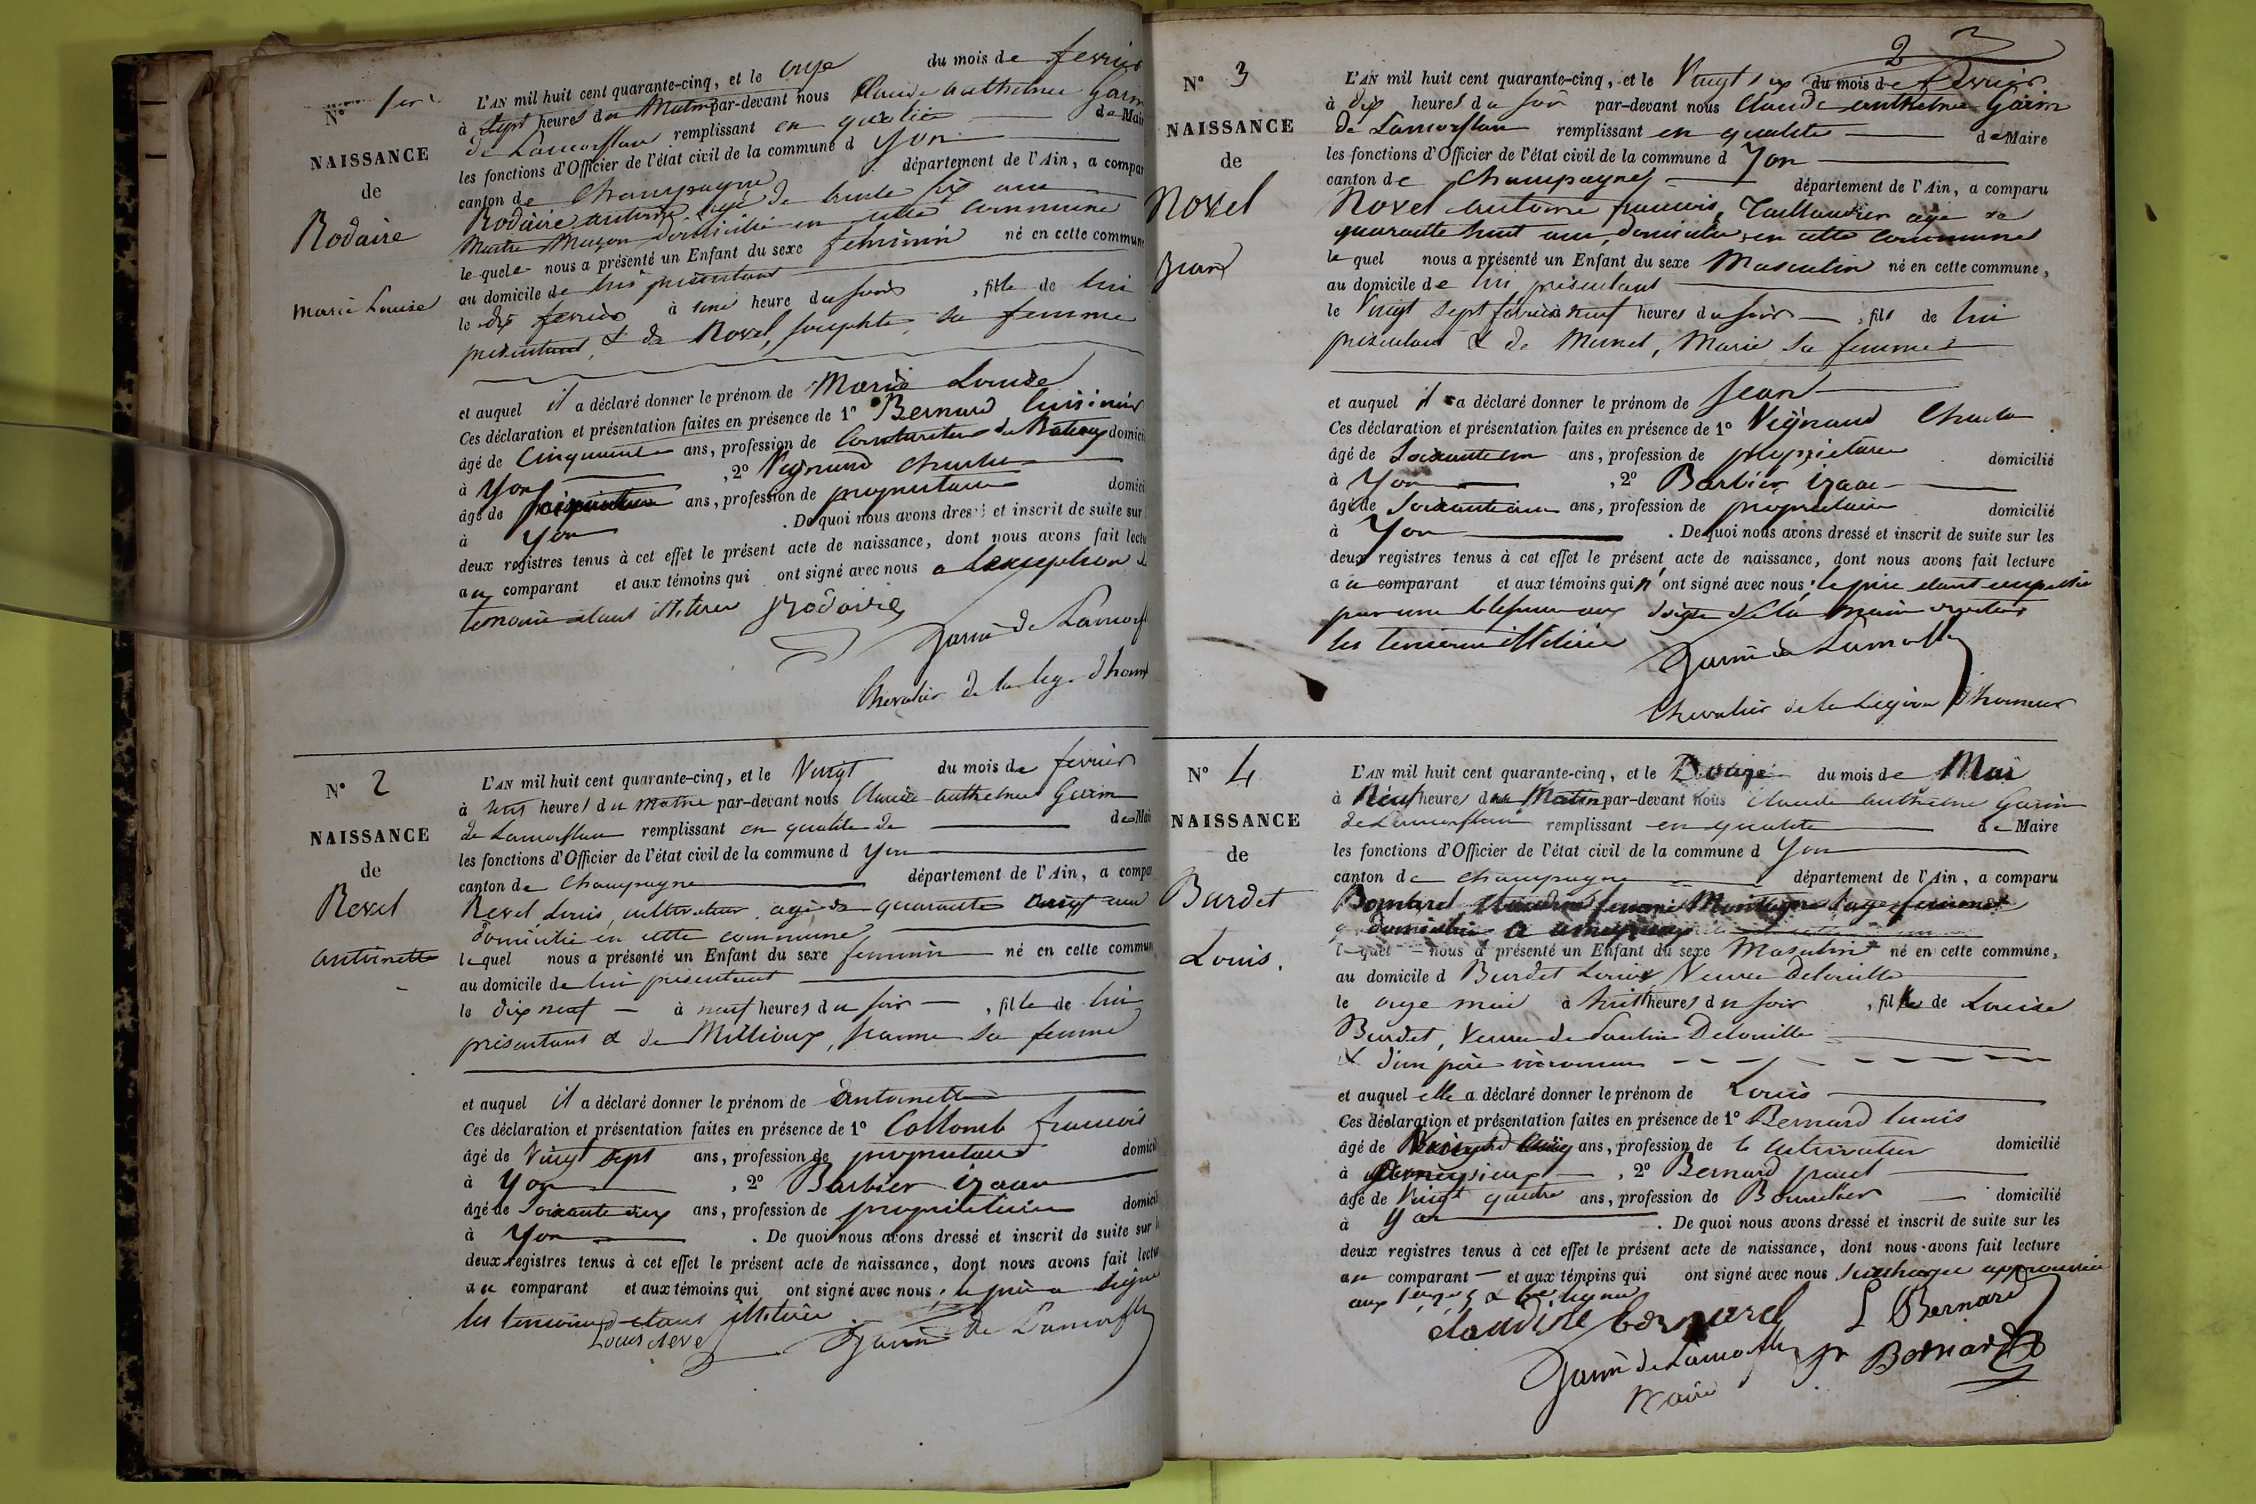 N° 1er
NAISSANCE
de
Rodaire
Marie Louise
L'AN mil huit cent quarante-cinq, et le onze du mois de fevrier
à sept heures du Matin par-devant nous Claude anthelme Garin
de Lamorflan remplissant en qualité de Mair
les fonctions d'Officier de l'état civil de la commune d Yon
canton de Champagne département de l'Ain, a compar
Rodaire antoine agé de trente six ans
Maitre Maçon domicilié en cette commune
le quel nous a présenté un Enfant du sexe feminin né en cette commune
au domicile de lui présentant
le dix fevrier à une heure du soir, fille de lui
présentant, & de Novel, josephte, sa femme
et auquel il a déclaré donner le prénom de Marie Louise
Ces déclaration et présentation faites en présence de 1° Bernard
âgé de Cinquante ans, profession de domici
à Yon, 2° Vignand Charles
âgé de ans, profession de propriétaire domici
à Yon. De quoi nous avons dressé et inscrit de suite sur
deux registres tenus à cet effet le présent acte de naissance, dont nous avons fait lectu
au comparant et aux témoins qui ont signé avec nous a Lexception
temoin étant illiteré Rodaire
Garin de Lamorfl
Chevalier de la leg. d'hon
N° 2
NAISSANCE
de
Revel
antoinette
L'AN mil huit cent quarante-cinq, et le Vingt du mois de fevrier
à huit heures du matin par-devant nous Claude anthelme Garin
de Lamorflan remplissant en qualité de de Mai
les fonctions d'Officier de l'état civil de la commune d Yon
canton de Champagne département de l'Ain, a compa
Revel Louis, cultivateur agé de quarante ans
domicilié en cette commune
le quel nous a présenté un Enfant du sexe feminin né en cette commun
au domicile de lui présentant
le dix neuf à neuf heures du soir, fille de lui
présentant & de Millioux, jeanne sa femme
et auquel il a déclaré donner le prénom de antoinette
Ces déclaration et présentation faites en présence de 1° Collomb francois
âgé de Vingt sept ans, profession de propriétaire domicil
à Yon, 2° Barbier izaac
âgé de Soixante ans, profession de propriétaire domicil
à Yon. De quoi nous avons dressé et inscrit de suite sur
deux registres tenus à cet effet le présent acte de naissance, dont nous avons fait lectu
au comparant et aux témoins qui ont signé avec nous, le père a signé
les temoins étant illiterés
Louis reve Garin de Lamorfl
2
N° 3
NAISSANCE
de
Novel
Jean
L'AN mil huit cent quarante-cinq, et le Vingt du mois de fevrier
à dix heures du soir par-devant nous Claude anthelme Garin
de Lamorflan remplissant en qualité de Maire
les fonctions d'Officier de l'état civil de la commune d Yon
canton de Champagne département de l'Ain, a comparu
Novel antoine francois, Taillandier agé de
quarante huit ans, domicilié en cette commune
le quel nous a présenté un Enfant du sexe Masculin né en cette commune,
au domicile de lui présentant
le Vingt sept fevrier à neuf heures du soir, fils de lui
présentant & de Munet, Marie sa femme
et auquel il a déclaré donner le prénom de Jean
Ces déclaration et présentation faites en présence de 1° Vignand Charles
âgé de Soixante un ans, profession de propriétaire domicilié
à Yon, 2° Barbier izaac
âgé de Soixante ans, profession de propriétaire domicilié
à Yon. De quoi nous avons dressé et inscrit de suite sur les
deux registres tenus à cet effet le présent acte de naissance, dont nous avons fait lecture
au comparant et aux témoins qui n'ont signé avec nous, le père étant empeché
par une blessure aux doigts de la main
les temoins illiterés
Garin de Lamorfl
Chevalier de la Légion d'honneur
N° 4
NAISSANCE
de
Burdet
Louis.
L'AN mil huit cent quarante-cinq, et le Douze du mois de Mai
à Neuf heures du Matin par-devant nous Claude anthelme Garin
de Lamorflan remplissant en qualité de Maire
les fonctions d'Officier de l'état civil de la commune d Yon
canton de Champagne département de l'Ain, a comparu
femme Montagne Sage femme
domiciliée a
l quel nous a présenté un Enfant du sexe Masculin né en cette commune,
au domicile d Burdet Louise Veuve Delouille
le onze mai à huit heures du soir, fils de Louise
Burdet, Veuve de Delouille
& d'un père inconnu
et auquel elle a déclaré donner le prénom de Louis
Ces déclaration et présentation faites en présence de 1° Bernard Louis
âgé de ans, profession de Cultivateur domicilié
à, 2° Bernard paul
âgé de Vingt quatre ans, profession de domicilié
à Yon. De quoi nous avons dressé et inscrit de suite sur les
deux registres tenus à cet effet le présent acte de naissance, dont nous avons fait lecture
au comparant et aux témoins qui ont signé avec nous Surcharge approuvée
claudine bernard L Bernard
Garin de Lamorfl P Bernard
Maire